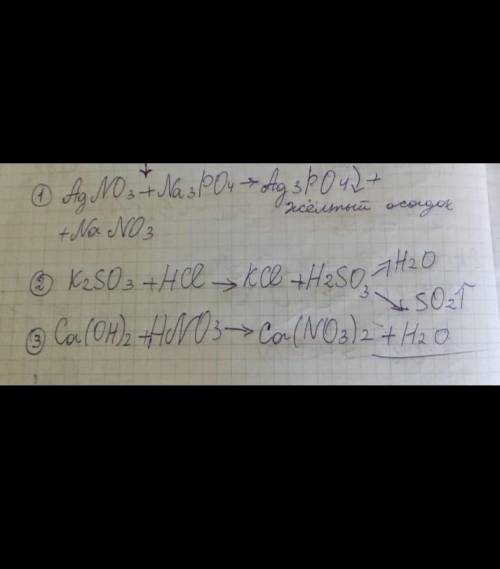 ① AgNO3 + Na3PO4 → Ag3PO4↓ +
жёлтый осадок
+ NaNO3
② K2SO3 + HCl → KCl + H2SO3 ↗ H2O
↘ SO2↑
③ Ca(OH)2 + HNO3 → Ca(NO3)2 + H2O